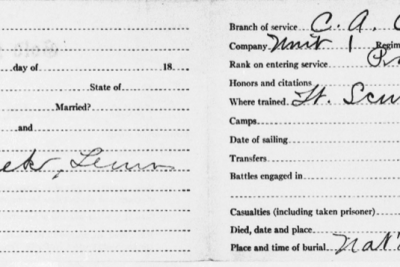 day of 18
State of
Married?
and
Branch of service C. A.
Company Unit 1 Regim
Rank on entering service
Honors and citations
Where trained Ft.
Camps
Date of sailing
Transfers
Battles engaged in
Casualties (including taken prisoner)
Died, date and place
Place and time of burial Nat'